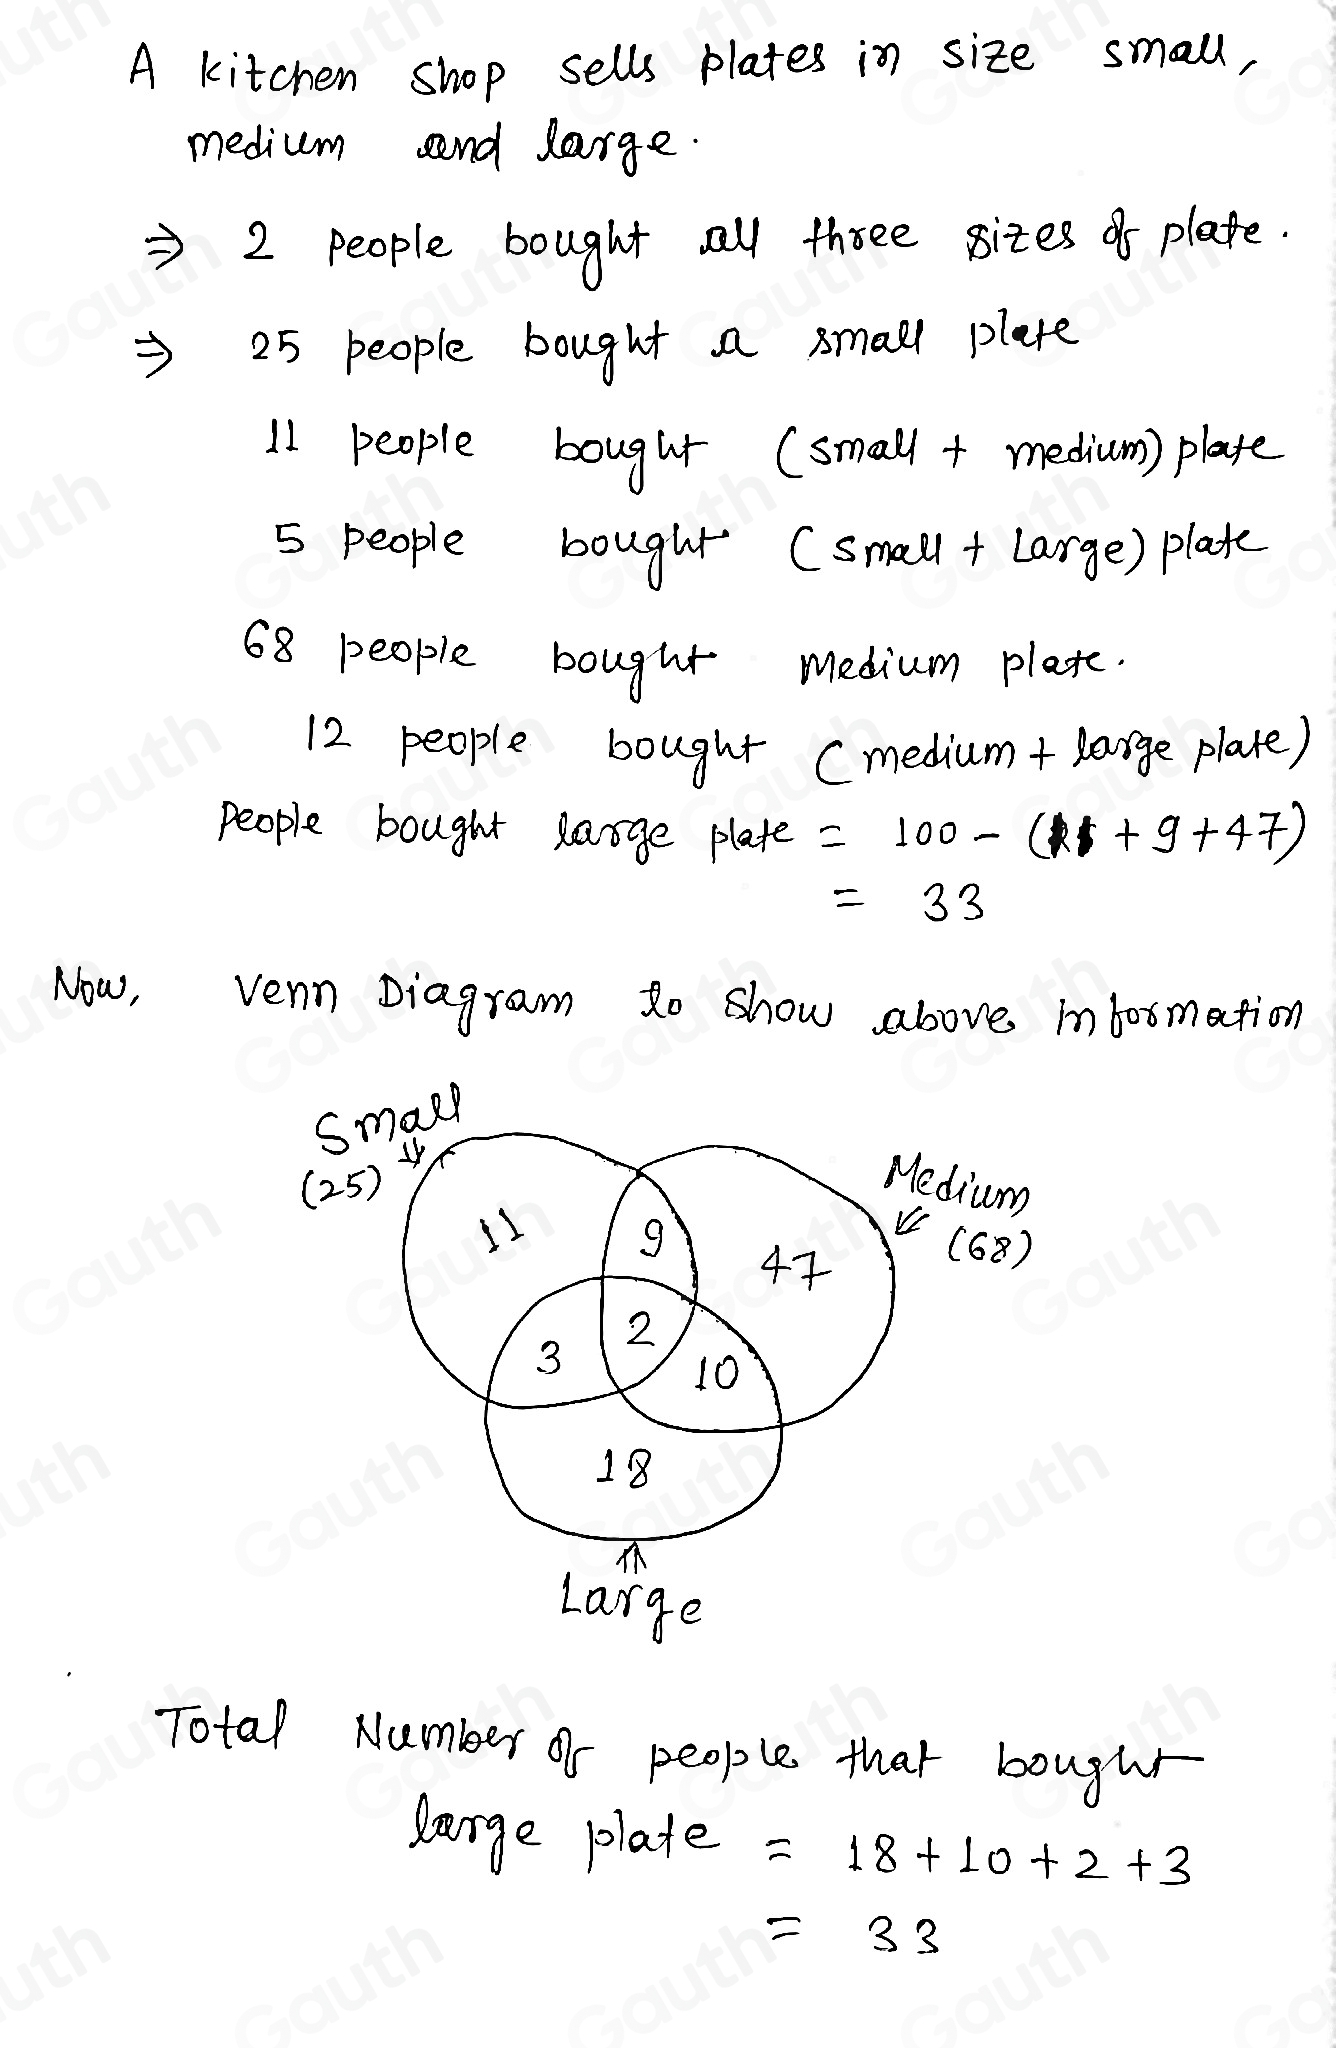 A kitchen shop sells plates in size small,
medium and large.
⇒ 2 people bought all three sizes of plate.
⇒ 25 people bought a small plate
11 people bought (small + medium) plate
5 people bought (small + Large) plate
68 people bought Medium plate.
12 people bought (medium + large plate)
People bought large plate = 100 - ( + 9 + 47)
= 33
Now, Venn Diagram to show above information
Small
(25)
Medium
(68)
11
9
47
3
2
10
18
Large
Total Number of people that bought
large plate = 18 + 10 + 2 + 3
= 33